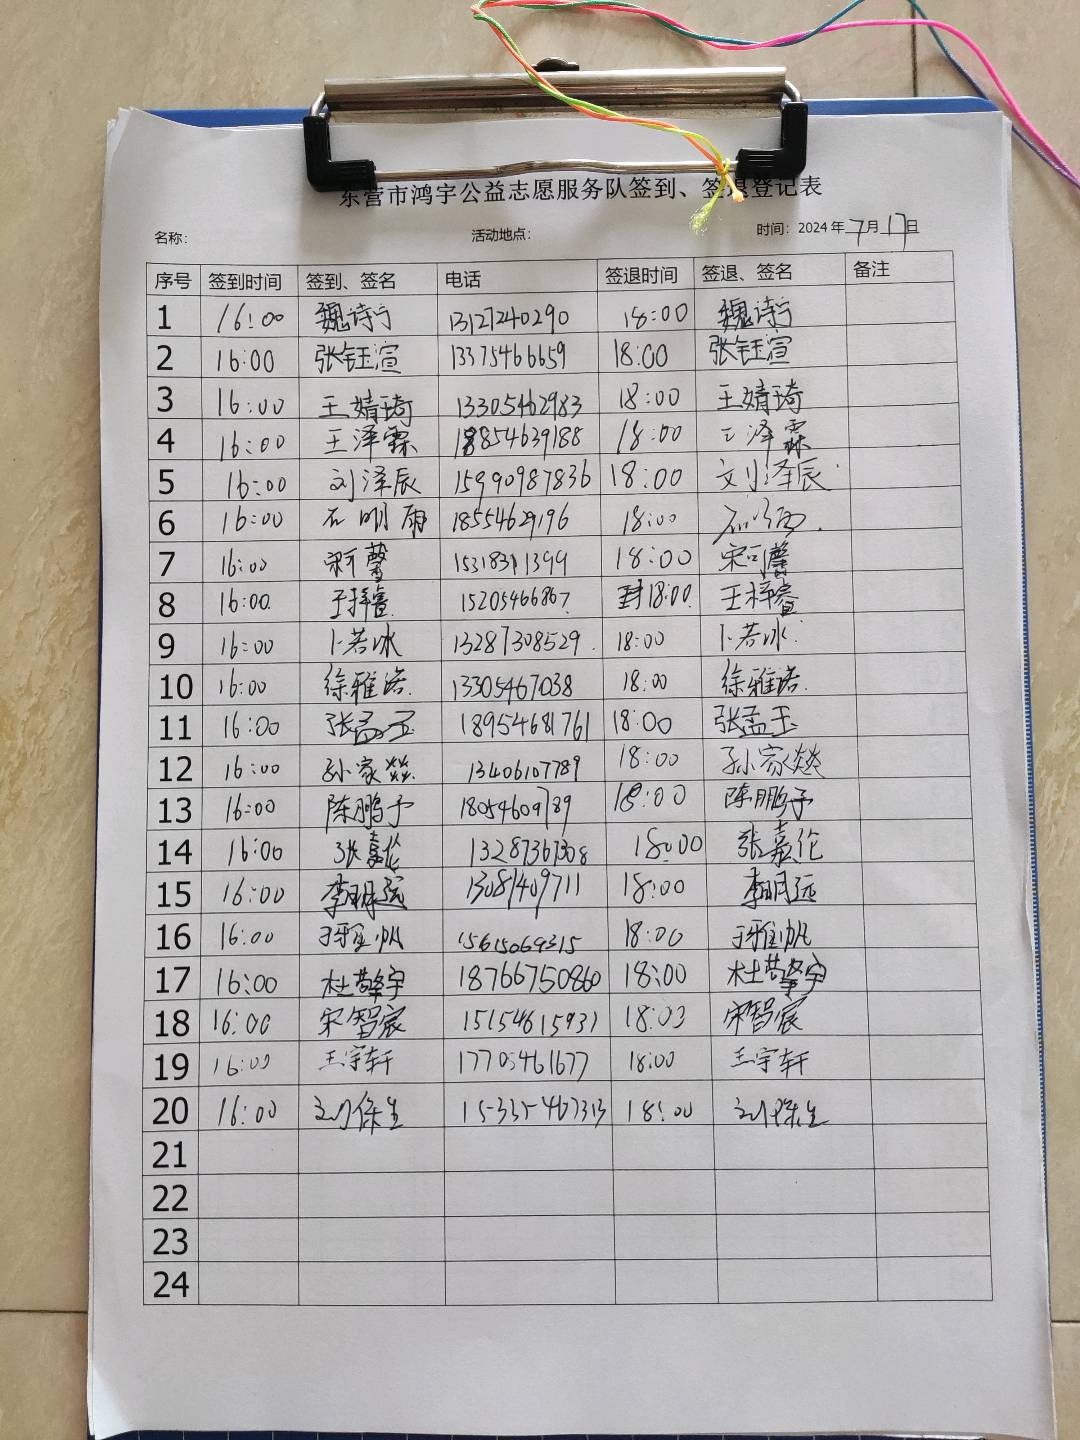 东营市鸿宇公益志愿服务队签到、签退登记表
名称： 活动地点： 时间：2024年7月17日
序号 签到时间 签到、签名 电话 签退时间 签退、签名 备注
1 16:00 魏诗宁 13127240290 18:00 魏诗宁
2 16:00 张钰渲 13375466659 18:00 张钰渲
3 16:00 王婧琦 13305462983 18:00 王婧琦
4 16:00 王泽霖 18854639188 18:00 王泽霖
5 16:00 刘泽辰 15990987836 18:00 刘泽辰
6 16:00 石明雨 18554629196 18:00
7 16:00 宋可馨 15318311399 18:00 宋可馨
8 16:00 王梓睿 15205466867 18:00 王梓睿
9 16:00 卜若冰 13287308529 18:00 卜若冰
10 16:00 徐雅诺 13305467038 18:00 徐雅诺
11 16:00 张孟玉 18954681761 18:00 张孟玉
12 16:00 孙家燚 13406107789 18:00 孙家燚
13 16:00 陈鹏予 18054609789 18:00 陈鹏予
14 16:00 张嘉伦 13287367308 18:00 张嘉伦
15 16:00 李明远 13081409711 18:00 李明远
16 16:00 于雅帆 15615069315 18:00 于雅帆
17 16:00 杜擎宇 18766750860 18:00 杜擎宇
18 16:00 宋智宸 15154615931 18:03 宋智宸
19 16:00 王宇轩 17705461677 18:00 王宇轩
20 16:00 刘保生 15335467313 18:00 刘保生
21
22
23
24